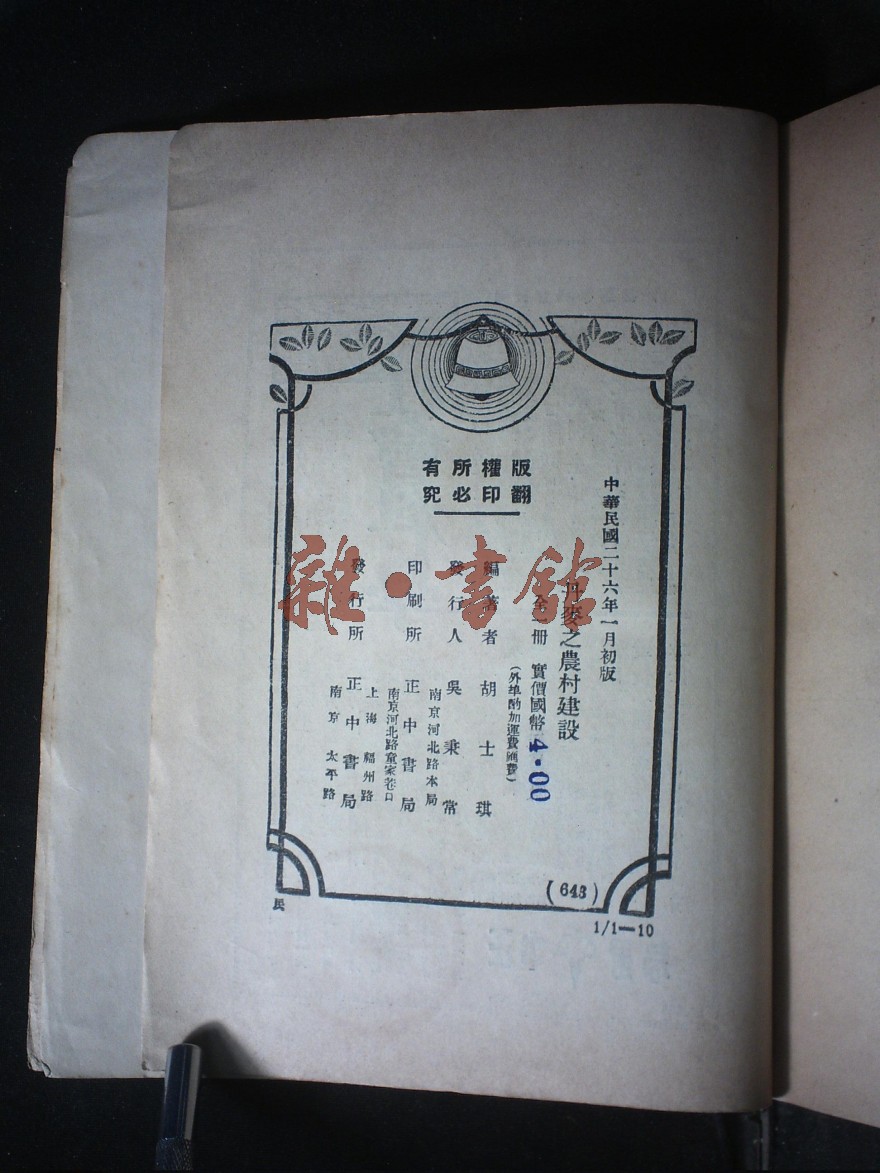 版權所有
翻印必究
中華民國二十六年一月初版
丹麥之農村建設
全一冊 實價國幣 4.00
(外埠酌加運費匯費)
編著者 胡士琪
發行人 吳秉常
南京河北路本局
印刷所 正中書局
南京河北路童家巷口
發行所 正中書局
上海福州路
南京太平路
(643)
民
1/1—10
雜·書館